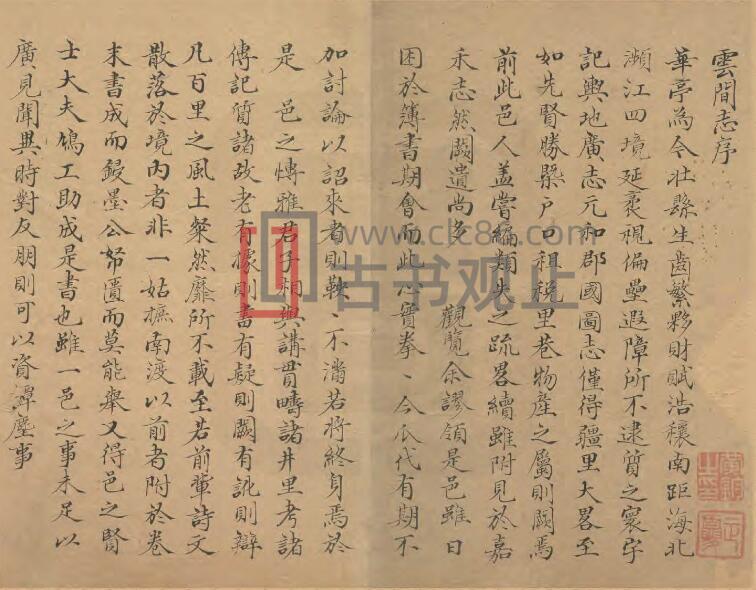 雲間志序
華亭為今壯縣生齒繁夥財賦浩穰南距海北
瀕江四境延袤視偏壘遐障所不逮質之寰宇
記輿地廣志元和郡國圖志僅得疆里大畧至
如先賢勝槩户口租税里巷物產之屬則闕焉
前此邑人盖嘗編類失之疏畧續雖附見於嘉
禾志然闕遺尚多 觀覽余謬領是邑雖日
困於簿書期會而此心實拳丶今瓜代有期不
加討論以詔來者則鞅丶不滿若將終身焉於
是 邑之愽雅君子相與講貫疇諸井里考諸
傳記質諸故老有據則書有疑則闕有訛則辯
凡百里之風土粲然靡所不載至若前輩詩文
散落於境内者非一姑摭南渡以前者附於卷
末書成而鋟墨公帑匱而莫能舉又得邑之賢
士大夫鳩工助成是書也雖一邑之事未足以
廣見聞異時對友朋則可以資譚麈事
古书观止